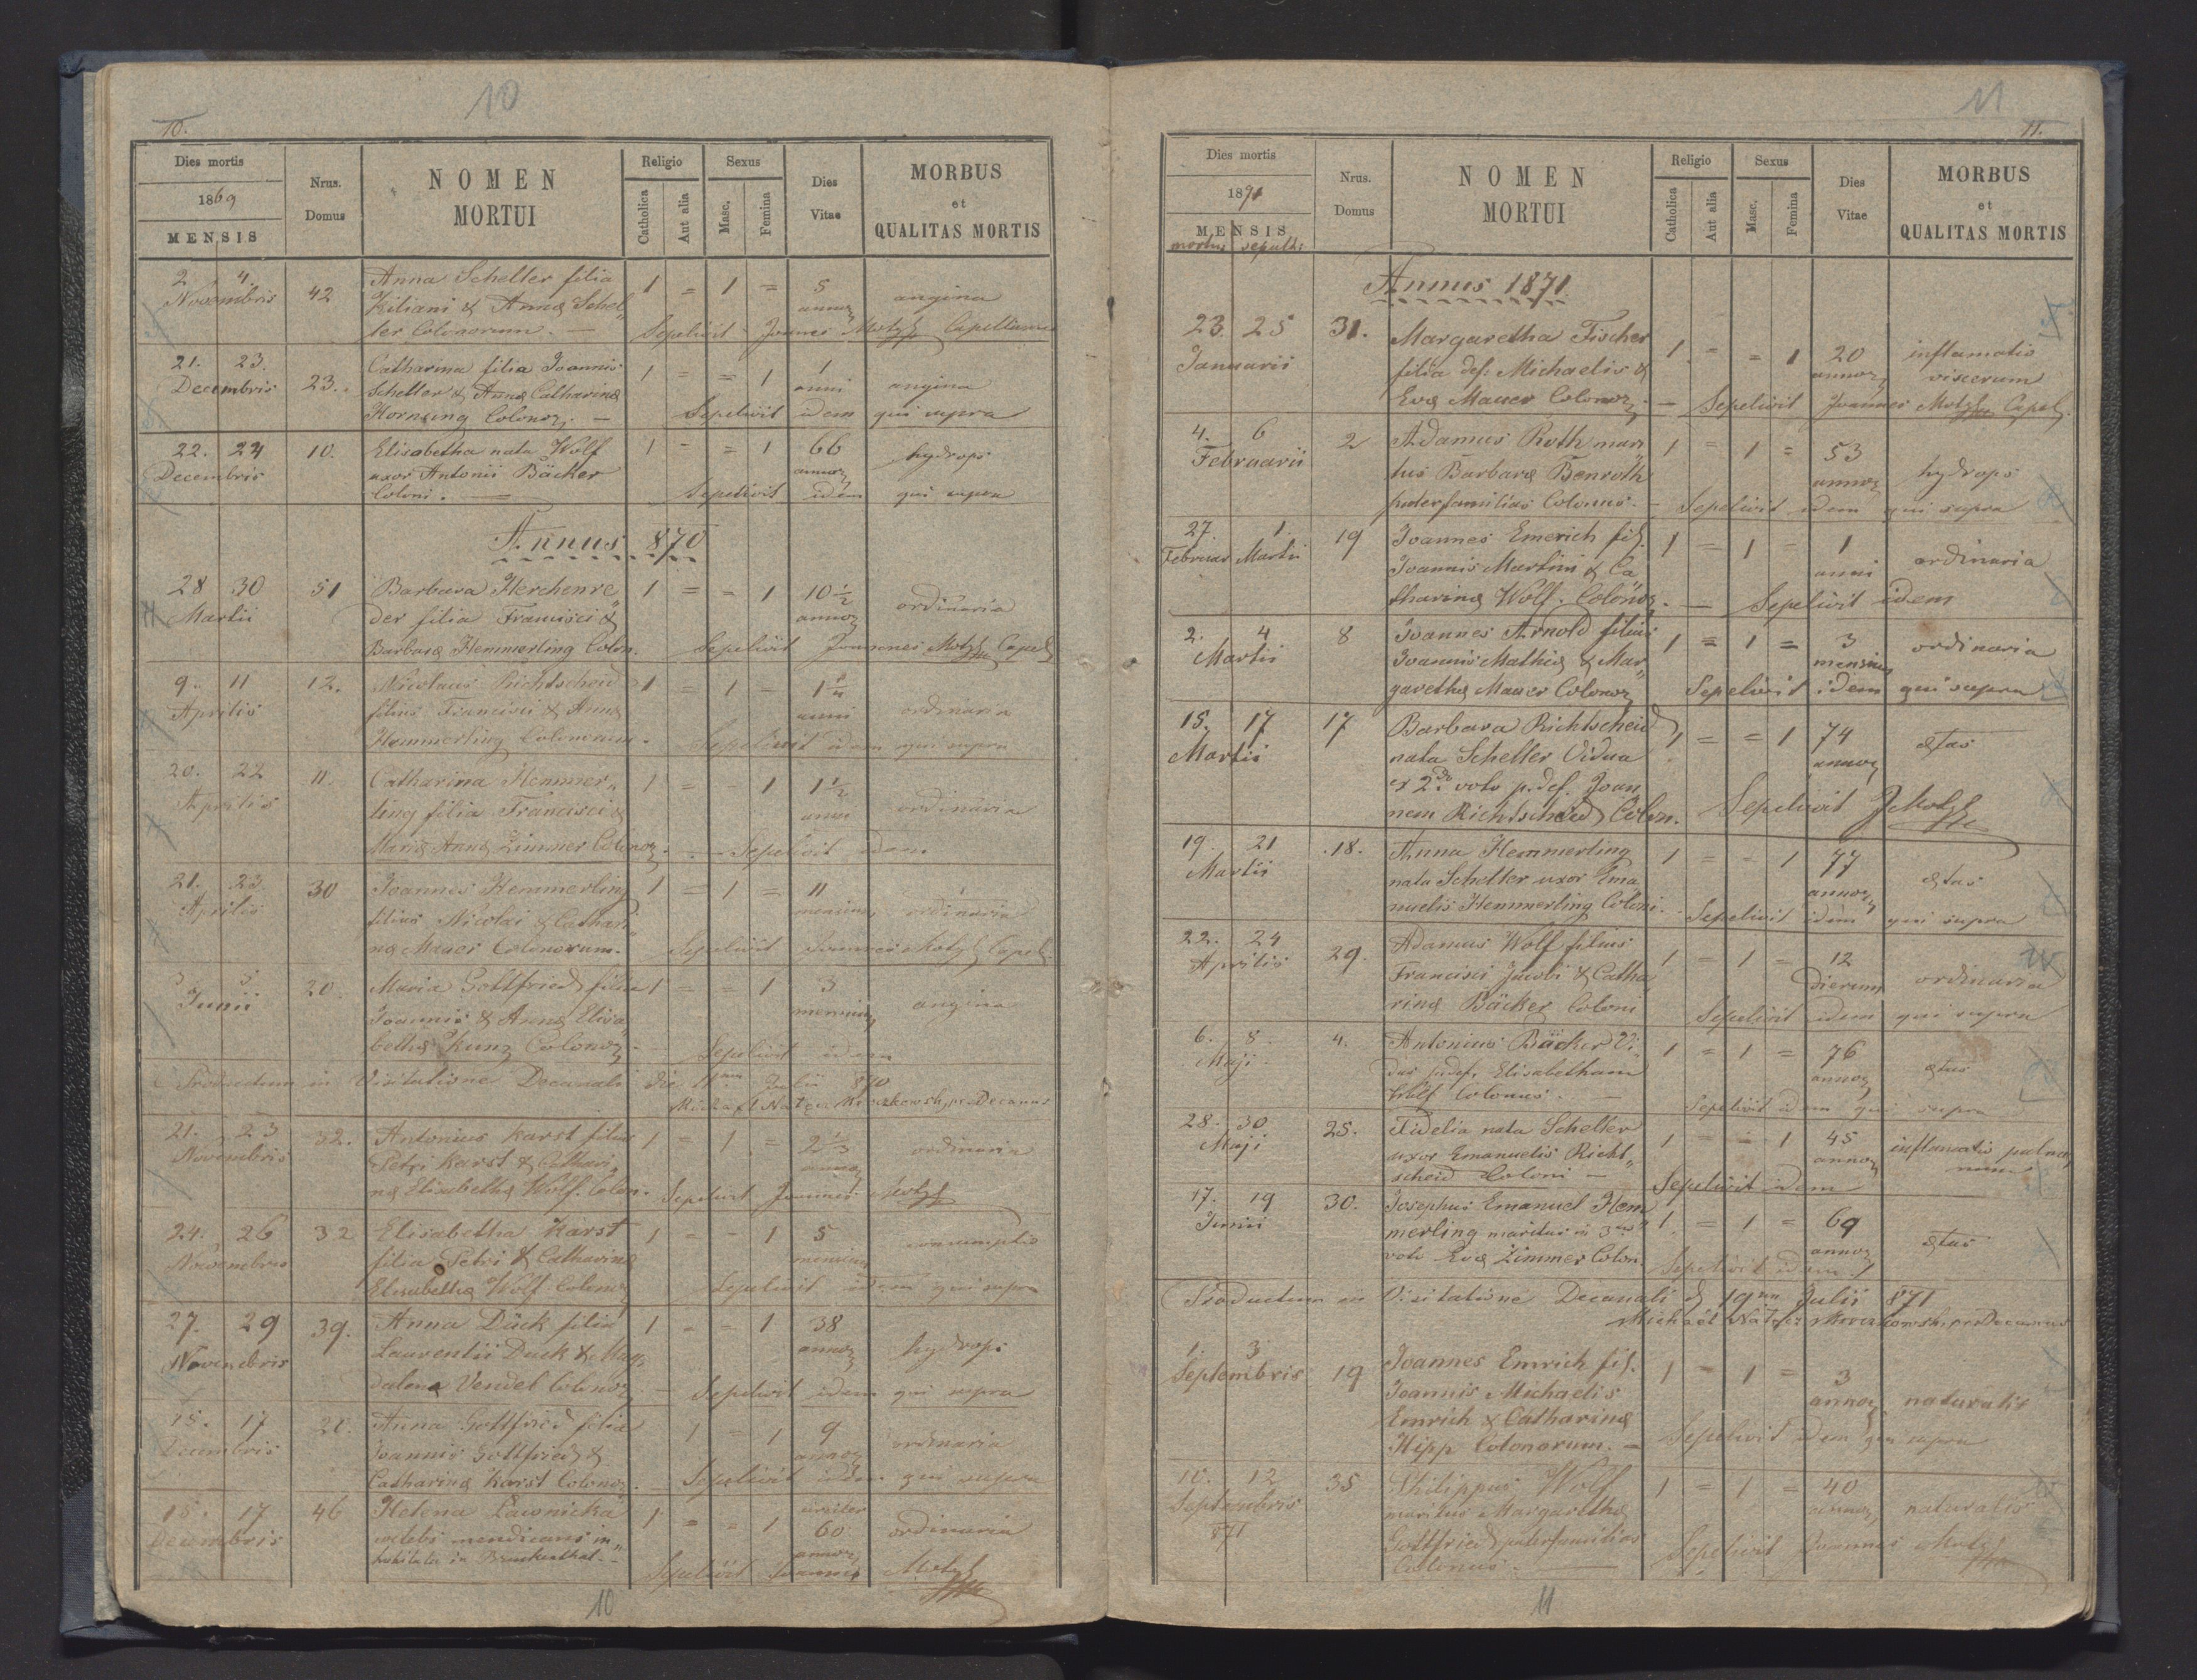 10
10.
Dies mortis
1869
MENSIS
Nrus.
Domus
NOMEN
MORTUI
Religio
Catholica
Aut alia
Sexus
Masc.
Femina
Dies
Vitae
MORBUS
et
QUALITAS MORTIS
2. 4. Novembris 42 Anna Scheller filia 1 = 1 = 5 annor angina
Kiliani & Anna Schel„
ler Colonorum. — Sepelivit Joannes Motyl Capellanus
21. 23. Decembris 23. Catharina filia Joannis 1 = = 1 1 anni angina
Scheller & Anna Catharina
Hornung Colonor. — Sepelivit idem qui supra
22. 24 Decembris 10. Elisabetha nata Wolf 1 = = 1 66 annor hydrops
uxor Antonii Bäcker
Coloni. — Sepelivit idem qui supra
Annus 870
28 30 Martii 51 Barbara Herchenre„ 1 = = 1 10 1/2 annor ordinaria
der filia Francisci &
Barbara Hemmerling Colon. Sepelivit Joannes Motyl Capel
9. 11 Aprilis 12. Nicolaus Richtscheid 1 = 1 = 1 anni ordinaria
filius Francisci & Anna
Hemmerling Colonorum. Sepelivit idem qui supra
20. 22 Aprilis 11. Catharina Hemmer„ 1 = - 1 1 1/2 anni ordinaria
ling filia Francisci &
Maria Anna Zimmer Colonor. — Sepelivit idem
21. 23. Aprilis 30 Joannes Hemmerling 1 = 1 = 11 mensium ordinaria
filius Nicolai & Cathari„
na Mauer Colonorum. Sepelivit Joannes Motyl Capel.
3 5 Junii 20. Maria Gottfried filia 1 = = 1 3 mensium angina
Joannis & Anna Elisa„
betha Kunz Colonor. — Sepelivit idem
Productum in Visitatione Decanali die Julii 870
Michael Decanus
21. 23 Novembris 32. Antonius Karst filius 1 = 1 = 2 1/3 annor ordinaria
Petri Karst & Cathari„
na Elisabetha Wolf. Colon. Sepelivit Joannes Motyl
24. 26 Novembris 32 Elisabetha Karst 1 = - 1 5 mensium consumptio
filia Petri & Catharina
Elisabetha Wolf Colonor Sepelivit idem qui supra
27. 29 Novembris 39. Anna Dück filia 1 - = 1 38 annor hydrops
Laurentii Duck & Mag„
dalena Vendel Colonor — Sepelivit idem qui supra
15. 17 Decembris 20. Anna Gottfried filia 1 = 1 9 annor ordinaria
Joannis Gottfried &
Catharina Karst Colonor. Sepelivit idem qui supra
15. 17 Decembris 46 Helena Ławnicka 1 = = 1 circiter 60 annor ordinaria
coelebs mendicans in„
habitata in Bruckenthal. — Sepelivit Joannes Motyl
10
11
11.
Dies mortis
1871
MENSIS
mortui sepulti
Nrus.
Domus
NOMEN
MORTUI
Religio
Catholica
Aut alia
Sexus
Masc.
Femina
Dies
Vitae
MORBUS
et
QUALITAS MORTIS
Annus 1871
23. 25 Januarii 31. Margaretha Fischer 1 = = 1 20 annor inflamatio viscerum
filia def. Michaelis &
Eva Mauer Colonor. — Sepelivit Joannes Motyl Capel.
4. 6 Februarii 2 Adamus Roth mari 1 = 1 = 53 annor hydrops
tus Barbara Benroth
paterfamilias Colonus. — Sepelivit idem qui supra
27. 1. Februar Martii 19 Joannes Emerich fil. 1 = 1 - 1 anni ordinaria
Joannis Martini & Ca
tharina Wolf. Colonor. — Sepelivit idem
2. 4 Martii 8 Joannes Arnold filius 1 = 1 = 3 mensium ordinaria
Joannis Mathia & Mar„
garetha Mauer Colonor Sepelivit idem qui supra
15. 17 Martii 17 Barbara Richtscheid 1 = = 1 74 annor ætas
nata Scheller Vidua
ex 2do voto p. def. Joan
nem Richtscheid Colon. Sepelivit JMotyl
19. 21 Martii 18. Anna Hemmerling 1 = - 1 77 annor ætas
nata Scheller uxor Ema
nuelis Hemmerling Coloni. Sepelivit idem qui supra
22. 24 Aprilis 29. Adamus Wolf filius 1 = 1 - 12 dierum ordinaria
Francisci Jacobi & Catha
rina Bäcker Coloni Sepelivit idem qui supra
6. 8. Maji 4. Antonius Bäcker Vi„ 1 = 1 = 76 annor ætas
duus p. def. Elisabetham
Wolf Colonus. — Sepelivit idem qui supra
28. 30 Maji 25. Fidelia nata Scheller 1 = = 1 45 annor inflamatio pulmo„
uxor Emanuelis Richt„ num
scheid Coloni — Sepelivit idem
17. 19 Junii 30. Josephus Emanuel Hem„ 1 = 1 = 69 annor ætas
merling maritus in 3tio
voto Eva Zimmer Colon. Sepelivit idem
Productum in Visitatione Decanali d 19na Julii 871
Michael Decanus
1. 3 Septembris 19 Joannes Emrich fil. 1 = 1 = 3 annor naturalis
Joannis Michaelis
Emrich & Catharina
Hipp Colonorum. — Sepelivit idem qui supra
10. 12 Septembris 871 35 Philippus Wolf 1 = 1 = 40 annor naturalis
maritus Margaretha
Gottfried paterfamilias
Colonus. — Sepelivit Joannes Motyl
11